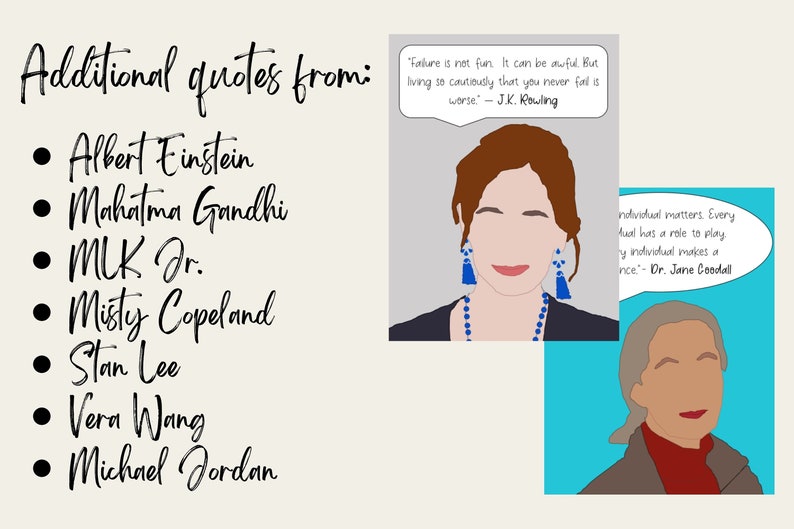 Additional quotes from:
Albert Einstein
Mahatma Gandhi
MLK Jr.
Misty Copeland
Stan Lee
Vera Wang
Michael Jordan
"Failure is not fun. It can be awful. But
living so cautiously that you never fail is
worse." — J.K. Rowling
individual matters. Every
has a role to play.
individual makes a
- Dr. Jane Goodall